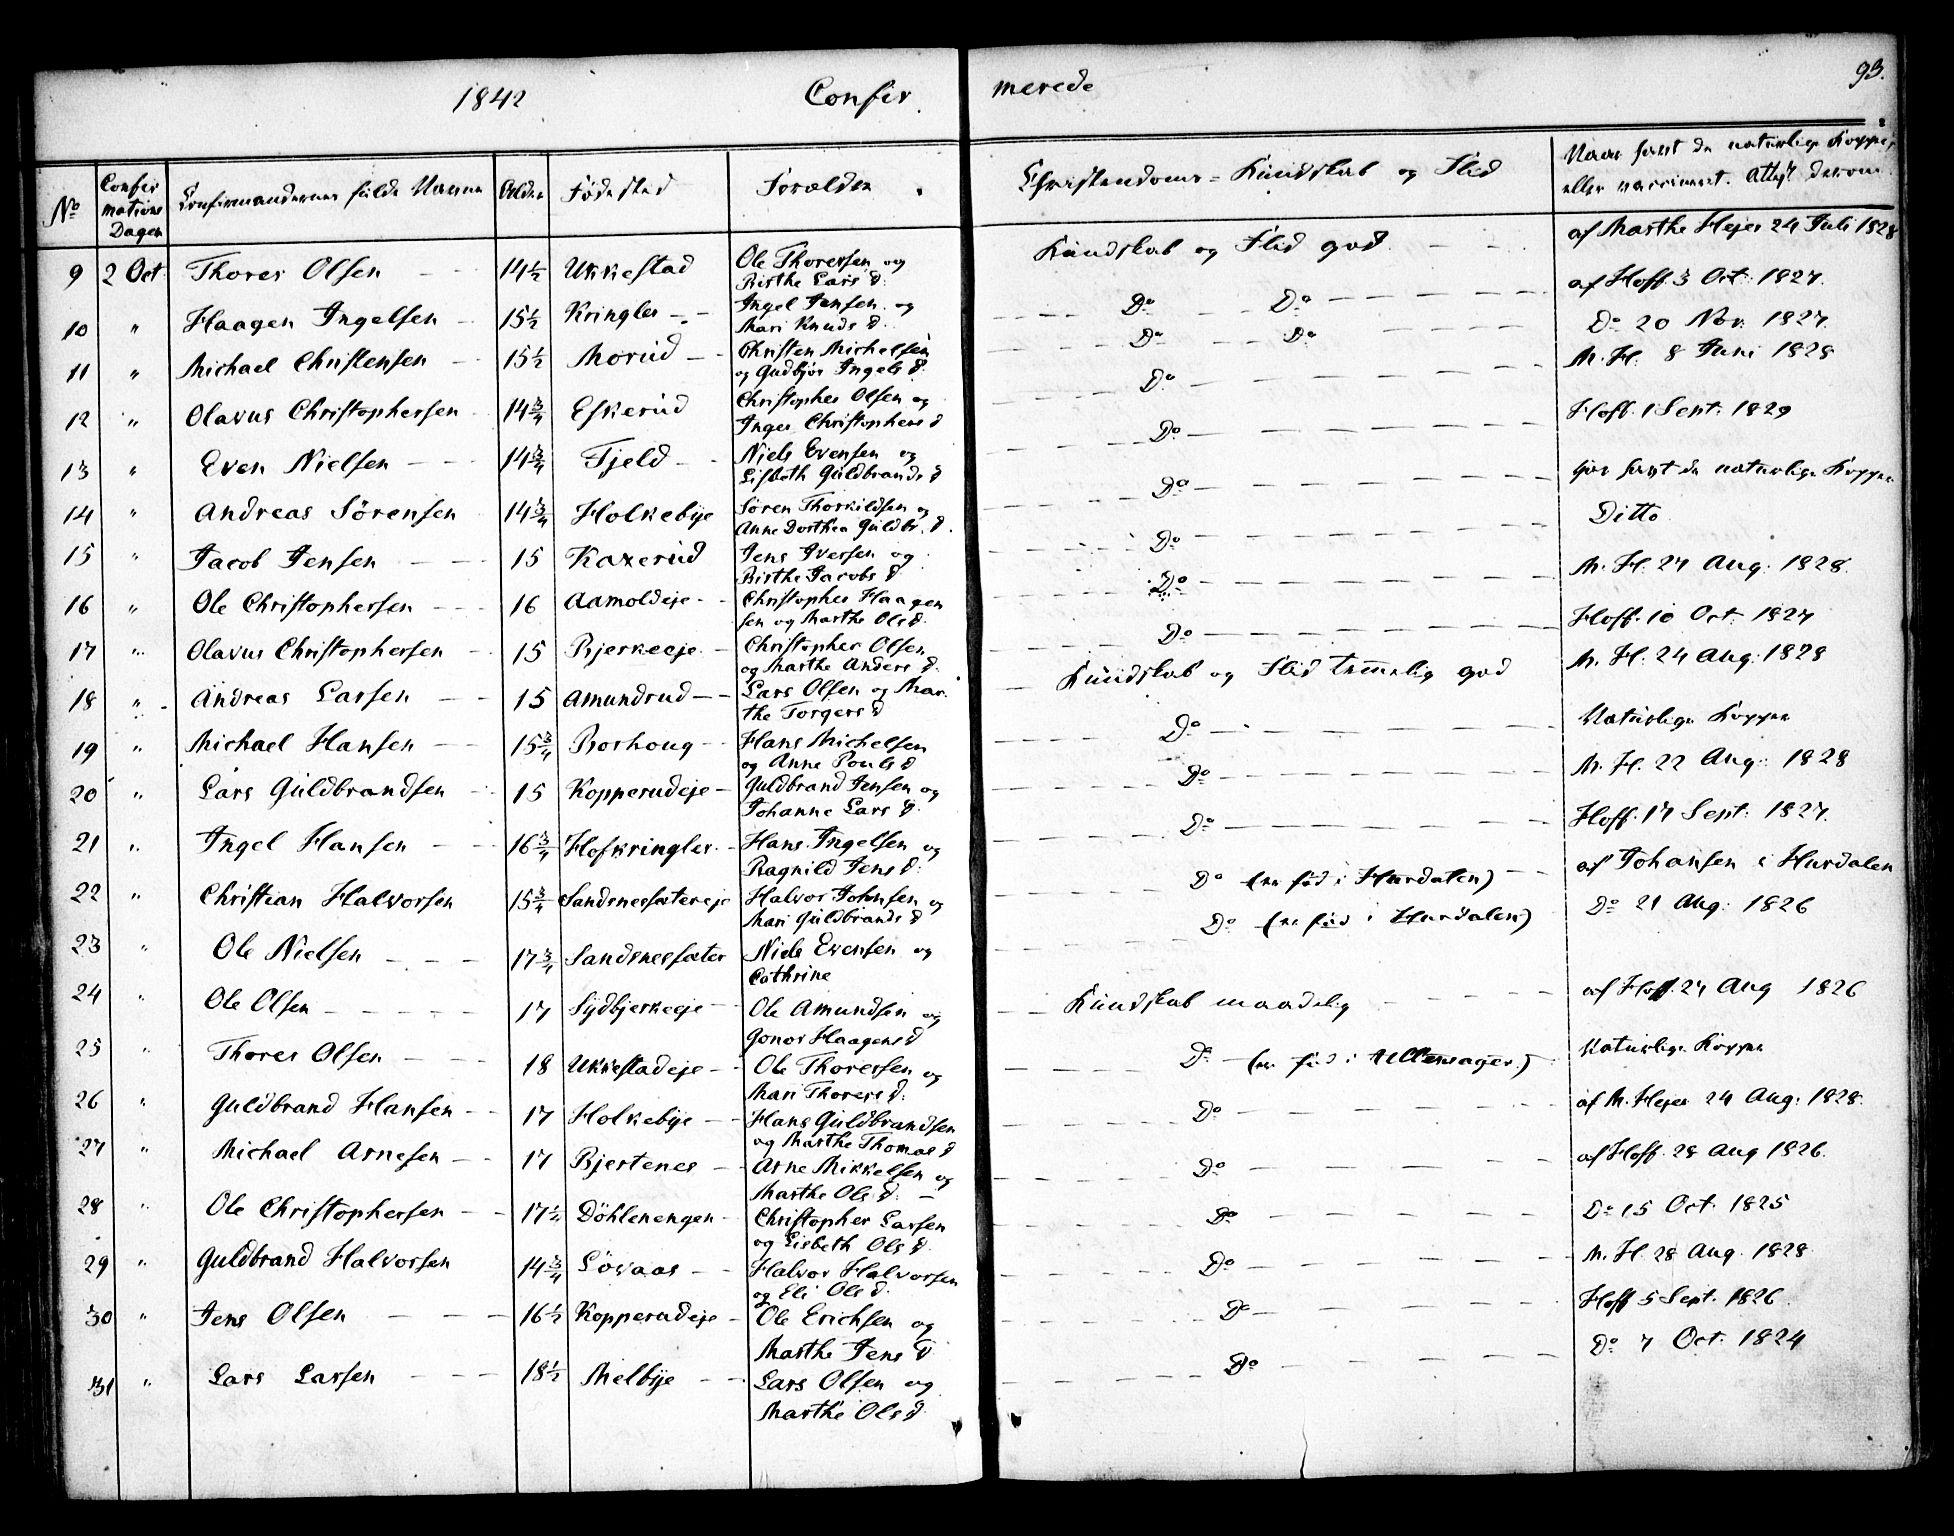 1842 Confirmerede 93.
No Confirmations Dagen Confirmandernes fulde Navne Alder Fødested Forældre Christendoms-Kundskab og Flid Naar havt de naturlige Kopper eller vaccineret. Attest derom
9 2 Oct: Thorer Olsen 14½ Ukkestad Ole Thoresen og Kundskab og Flid god. af Marthe Hejer 24 Juli 1828
Birthe Lars D.
10 " Haagen Ingelsen 15½ Kringler Ingel Jensen og Do Do af Hoff 3 Oct: 1827.
Mari Knuds D.
11 " Michael Christensen 15½ Morud Christen Michelsen Do Do Do 20 Nov. 1827.
og Gudbjør Ingels D.
12 " Olavus Christophersen 14¾ Eskerud Christopher Olsen og Do M. H. 8 Juni 1828
Inger Christophers D
13 " Even Nielsen 14¾ Fjeld Niels Evensen og Do Hoff. 1 Sept: 1829
Lisbeth Guldbrands D
14 " Andreas Sørensen 14¾ Holkebye Søren Thorkildsen og Do har havt de naturlige Kopper
Anne Dorthea Guldbr. D.
15 " Jacob Jensen 15 Kaxerud Jens Iversen og Do Ditto
Birthe Jacobs D
16 " Ole Christophersen 16 Aamoldeje Christopher Haagen Do M. H. 27 Aug: 1828.
sen og Marthe Ols D.
17 " Olavus Christophersen 15 Bjerkeeje Christopher Olsen Do Hoff. 10 Oct. 1827
og Marthe Anders D.
18 " Andreas Larsen 15 Amundrud Lars Olsen og Mar- Kundskab og Flid temmelig god M. H. 24 Aug: 1828
the Torgers D
19 " Michael Hansen 15¾ Borhoug Hans Michelsen Do Naturlige Kopper
og Anne Pouls D
20 " Lars Guldbrandsen 15 Kopperudeje Guldbrand Jensen og Do M. H. 22 Aug: 1828
Johanne Lars D.
21 " Ingel Hansen 16¾ Hofkringler Hans Ingelsen og Do Hoff. 17 Sept: 1827.
Ragnild Jens D.
22 " Christian Halvorsen 15¾ Sandsnessætereje Halvor Johnsen og Do (er fød i Hurdalen) af Johansen i Hurdalen
Mari Guldbrands D
23 " Ole Nielsen 17¾ Sandsnessæter Niels Evensen og Do (er fød i Hurdalen) Do 21 Aug: 1826
Cathrine
24 " Ole Olsen 17 Sydbjerkeeje Ole Amundsen og Kundskab maadelig af Hoff. 24 Aug 1826
Gonor Haagens D
25 " Thorer Olsen 18 Ukkestadeje Ole Thoresen og Do (er fød i Ullensager.) Naturlige Kopper
Mari Thorers D.
26 " Guldbrand Hansen 17 Holkebye Hans Guldbrandsen Do af M. Hejer 24 Aug: 1828.
og Marthe Thomas D
27 " Michael Arnesen 17 Bjertenes Arne Mikkelsen og Do af Hoff. 28 Aug 1826.
Marthe Ols D.
28 " Ole Christophersen 17½ Døhlenengen Christopher Larsen Do Do 15 Oct. 1825
og Lisbeth Ols D.
29 " Guldbrand Halvorsen 14¾ Løvaas Halvor Halvorsen Do M. H. 28 Aug. 1828
og Eli Ols D.
30 " Jens Olsen 16½ Kopperudeje Ole Erichsen og Do Hoff 5 Sept. 1826.
Marthe Jens D
31 " Lars Larsen 18½ Melbye Lars Olsen og Do Do 7 Oct. 1824
Marthe Ols D